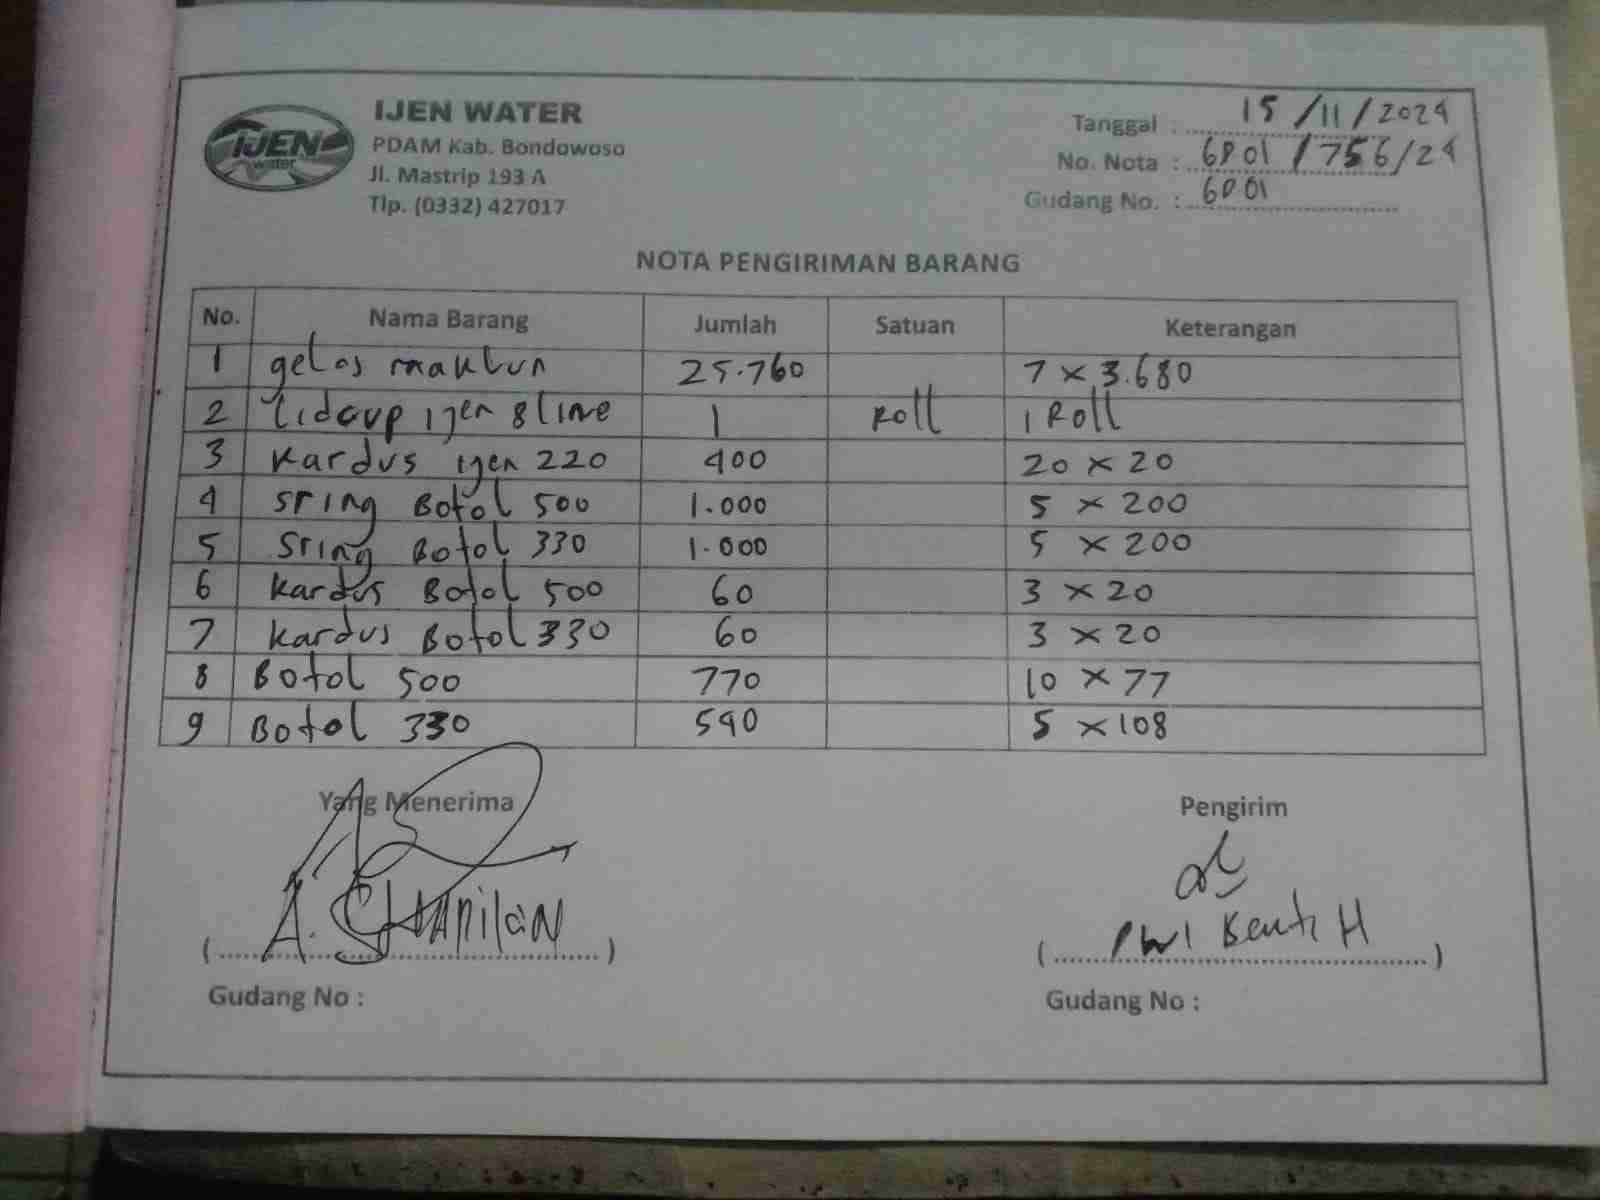 IJEN
water
IJEN WATER
PDAM Kab. Bondowoso
Jl. Mastrip 193 A
Tlp. (0332) 427017
Tanggal : 15/11/2024
No. Nota : 6D01/756/24
Gudang No. : 6D01
NOTA PENGIRIMAN BARANG
No. Nama Barang Jumlah Satuan Keterangan
1 gelas maklun 25.760 7 x 3.680
2 Lidcup ijen 8 line 1 Roll 1 Roll
3 Kardus ijen 220 400 20 x 20
4 Sring Botol 500 1.000 5 x 200
5 Sring Botol 330 1.000 5 x 200
6 Kardus Botol 500 60 3 x 20
7 Kardus Botol 330 60 3 x 20
8 Botol 500 770 10 x 77
9 Botol 330 540 5 x 108
Yang Menerima Pengirim
Gudang No : Gudang No :